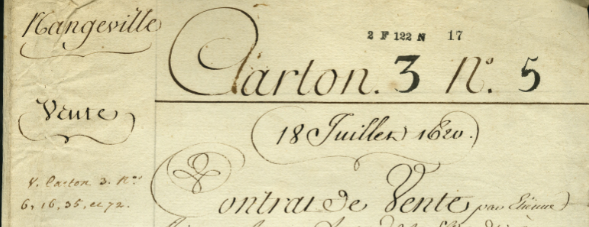 Nangeville
Vente
V. Carton 3. Nos
6, 16, 35, et 72.
2 F 122 N 17
Carton. 3 No. 5
18 Juillet 1620.
Contrat de Vente par Etienne